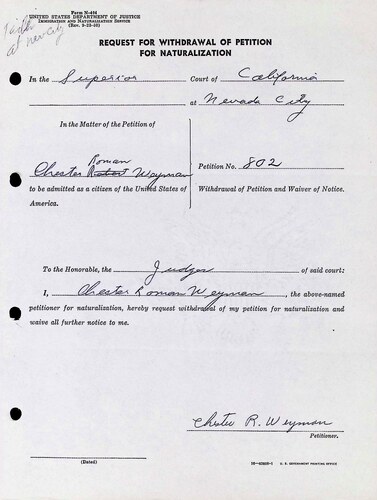 Form N-404
UNITED STATES DEPARTMENT OF JUSTICE
IMMIGRATION AND NATURALIZATION SERVICE
at Nev City
REQUEST FOR WITHDRAWAL OF PETITION
FOR NATURALIZATION
In the Superior Court of California
at Nevada City
In the Matter of the Petition of
Roman
Chester Weyman
Petition No. 802
to be admitted as a citizen of the United States of
America.
Withdrawal of Petition and Waiver of Notice.
To the Honorable, the Judges of said court:
I, Chester Roman Weyman, the above-named
petitioner for naturalization, hereby request withdrawal of my petition for naturalization and
waive all further notice to me.
Chester R. Weyman
Petitioner.
(Dated)
U. S. GOVERNMENT PRINTING OFFICE